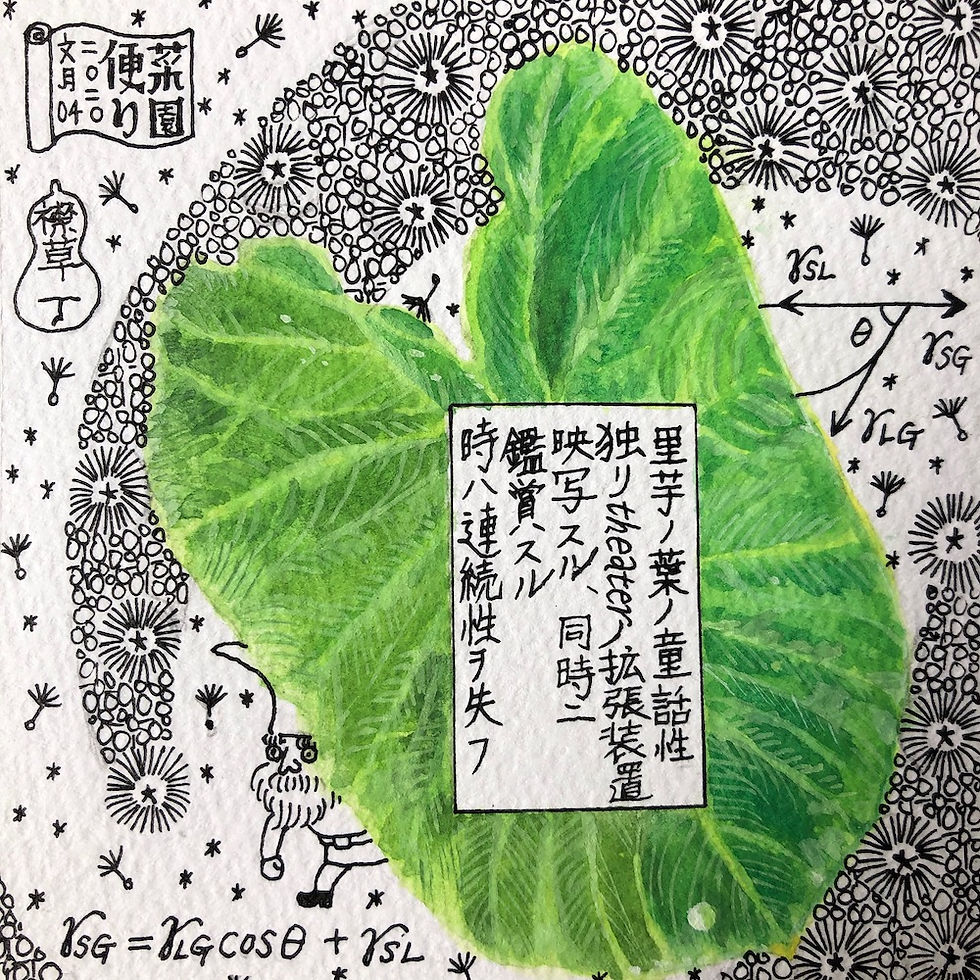 菜園
便り
二〇二〇
文月04
襟草丁
γSL
θ
γSG
γLG
里芋ノ葉ノ童話性
独リtheater、拡張装置
映写スル、同時ニ
鑑賞ハスル
時ハ連続性ヲ失フ
γSG = γLG cosθ + γSL